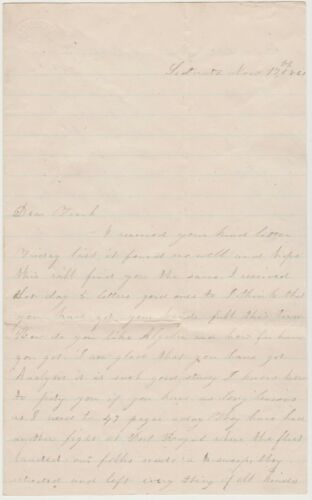 Scituate Nov 17th 1861
Dear Frank
I received your kind letter
Friday last it found me well and hope
this will find you the same I received
that day 6 letters yours was to I think that
you have got your hands full this Term
How do you like Algebra and how far have
you got I am glad that you have got
Analysis it is such good study I know how
to pity you if you have as long lessons
as I used to 47 pages a day they have had
another fight at Port Royal where the fleet
landed our folks made a sweep they
retreated and left every thing of all kinds